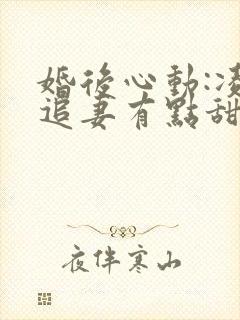 婚後心動:凌
追妻有點甜
夜伴寒山